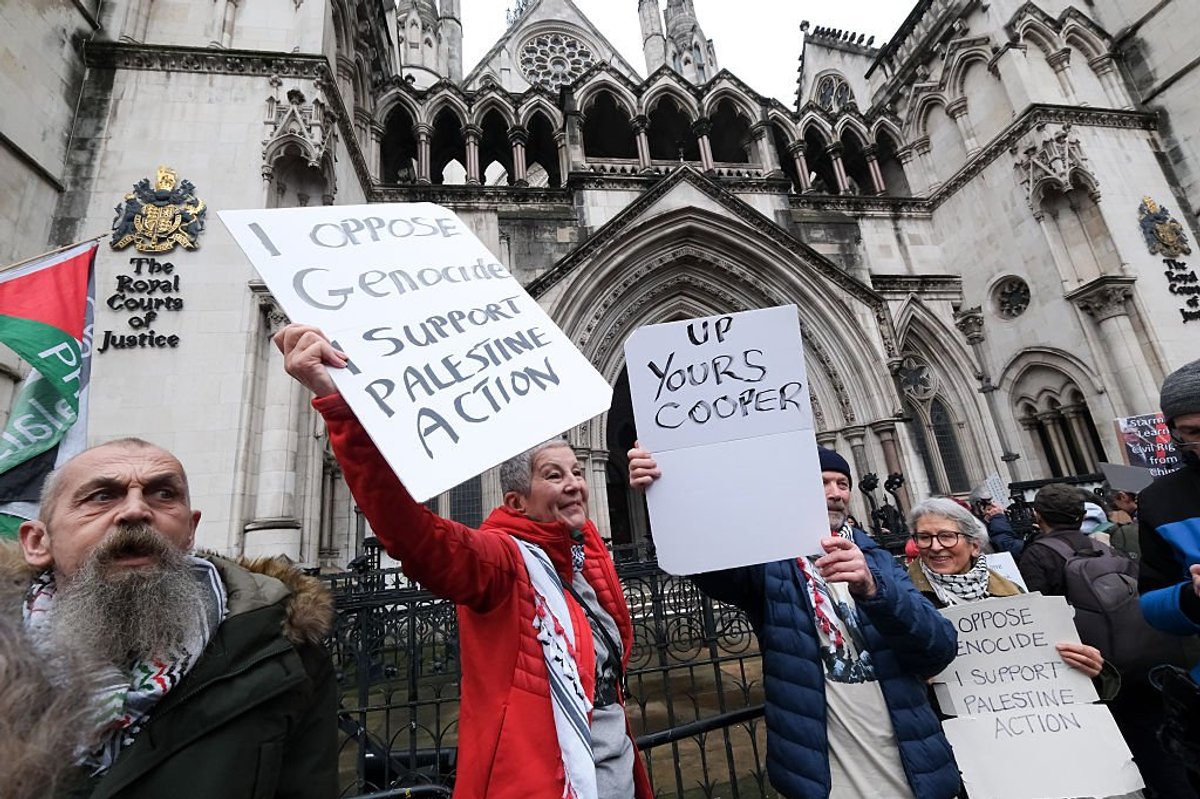 The
Royal
Courts
of
Justice
I OPPOSE
Genocide
I SUPPORT
PALESTINE
ACTION
UP
YOURS
COOPER
OPPOSE
GENOCIDE
I SUPPORT
PALESTINE
ACTION
The